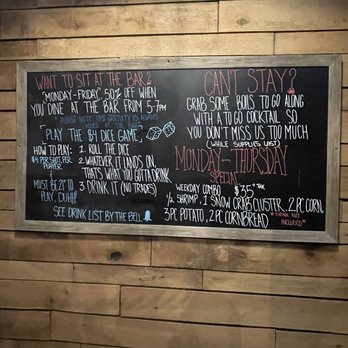 WANT TO SIT AT THE BAR?
"MONDAY-FRIDAY" 50% OFF WHEN
YOU DINE AT THE BAR FROM 5-7PM
* PLEASE NOTE THAT GRATUITY IS ALWAYS
PLAY THE $4 DICE GAME
HOW TO PLAY:
$4 PER SHOT, PER
&
MUST BE 21 TO
PLAY, DUHH!
1 ROLL THE DICE
2 WHATEVER IT LANDS ON,
THAT'S WHAT YOU GOTTA DRINK
3 DRINK IT (NO TRADES)
SEE DRINK LIST BY THE BELL
CAN'T STAY?
GRAB SOME BOILS TO GO ALONG
WITH A TO GO COCKTAIL SO
YOU DON'T MISS US TOO MUCH
(WHILE SUPPLIES LAST)
MONDAY-THURSDAY
SPECIAL
WEEKDAY COMBO $35 +TAX
1/2 SHRIMP, 1 SNOW CRAB CLUSTER, 2 PC CORN,
3 PC POTATO, 2 PC CORNBREAD * DRINK NOT
INCLUDED *